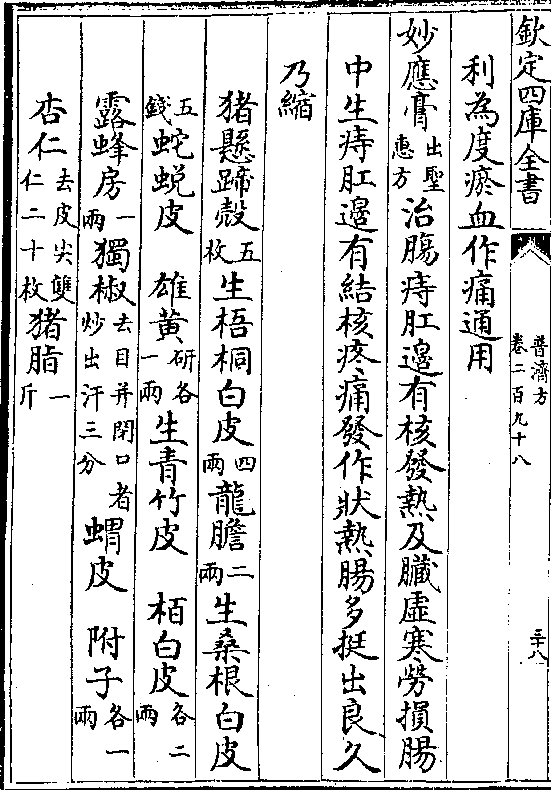 欽定四庫全書
普濟方
卷二百九十八
三十八
利為度瘀血作痛通用
妙應膏出聖惠方治腸痔肛邉有核發熱及臟虛寒勞損腸
中生痔肛邉有結核疼痛發作狀熱腸多挺出良久
乃縮
猪懸蹄殼五枚生梧桐白皮四兩龍膽二兩生桑根白皮
五錢蛇蛻皮雄黃研各一兩生青竹皮栢白皮各二兩
露蜂房一兩獨椒去目并閉口者炒出汗三分蝟皮附子各一兩
杏仁去皮尖雙仁二十枚猪脂一斤